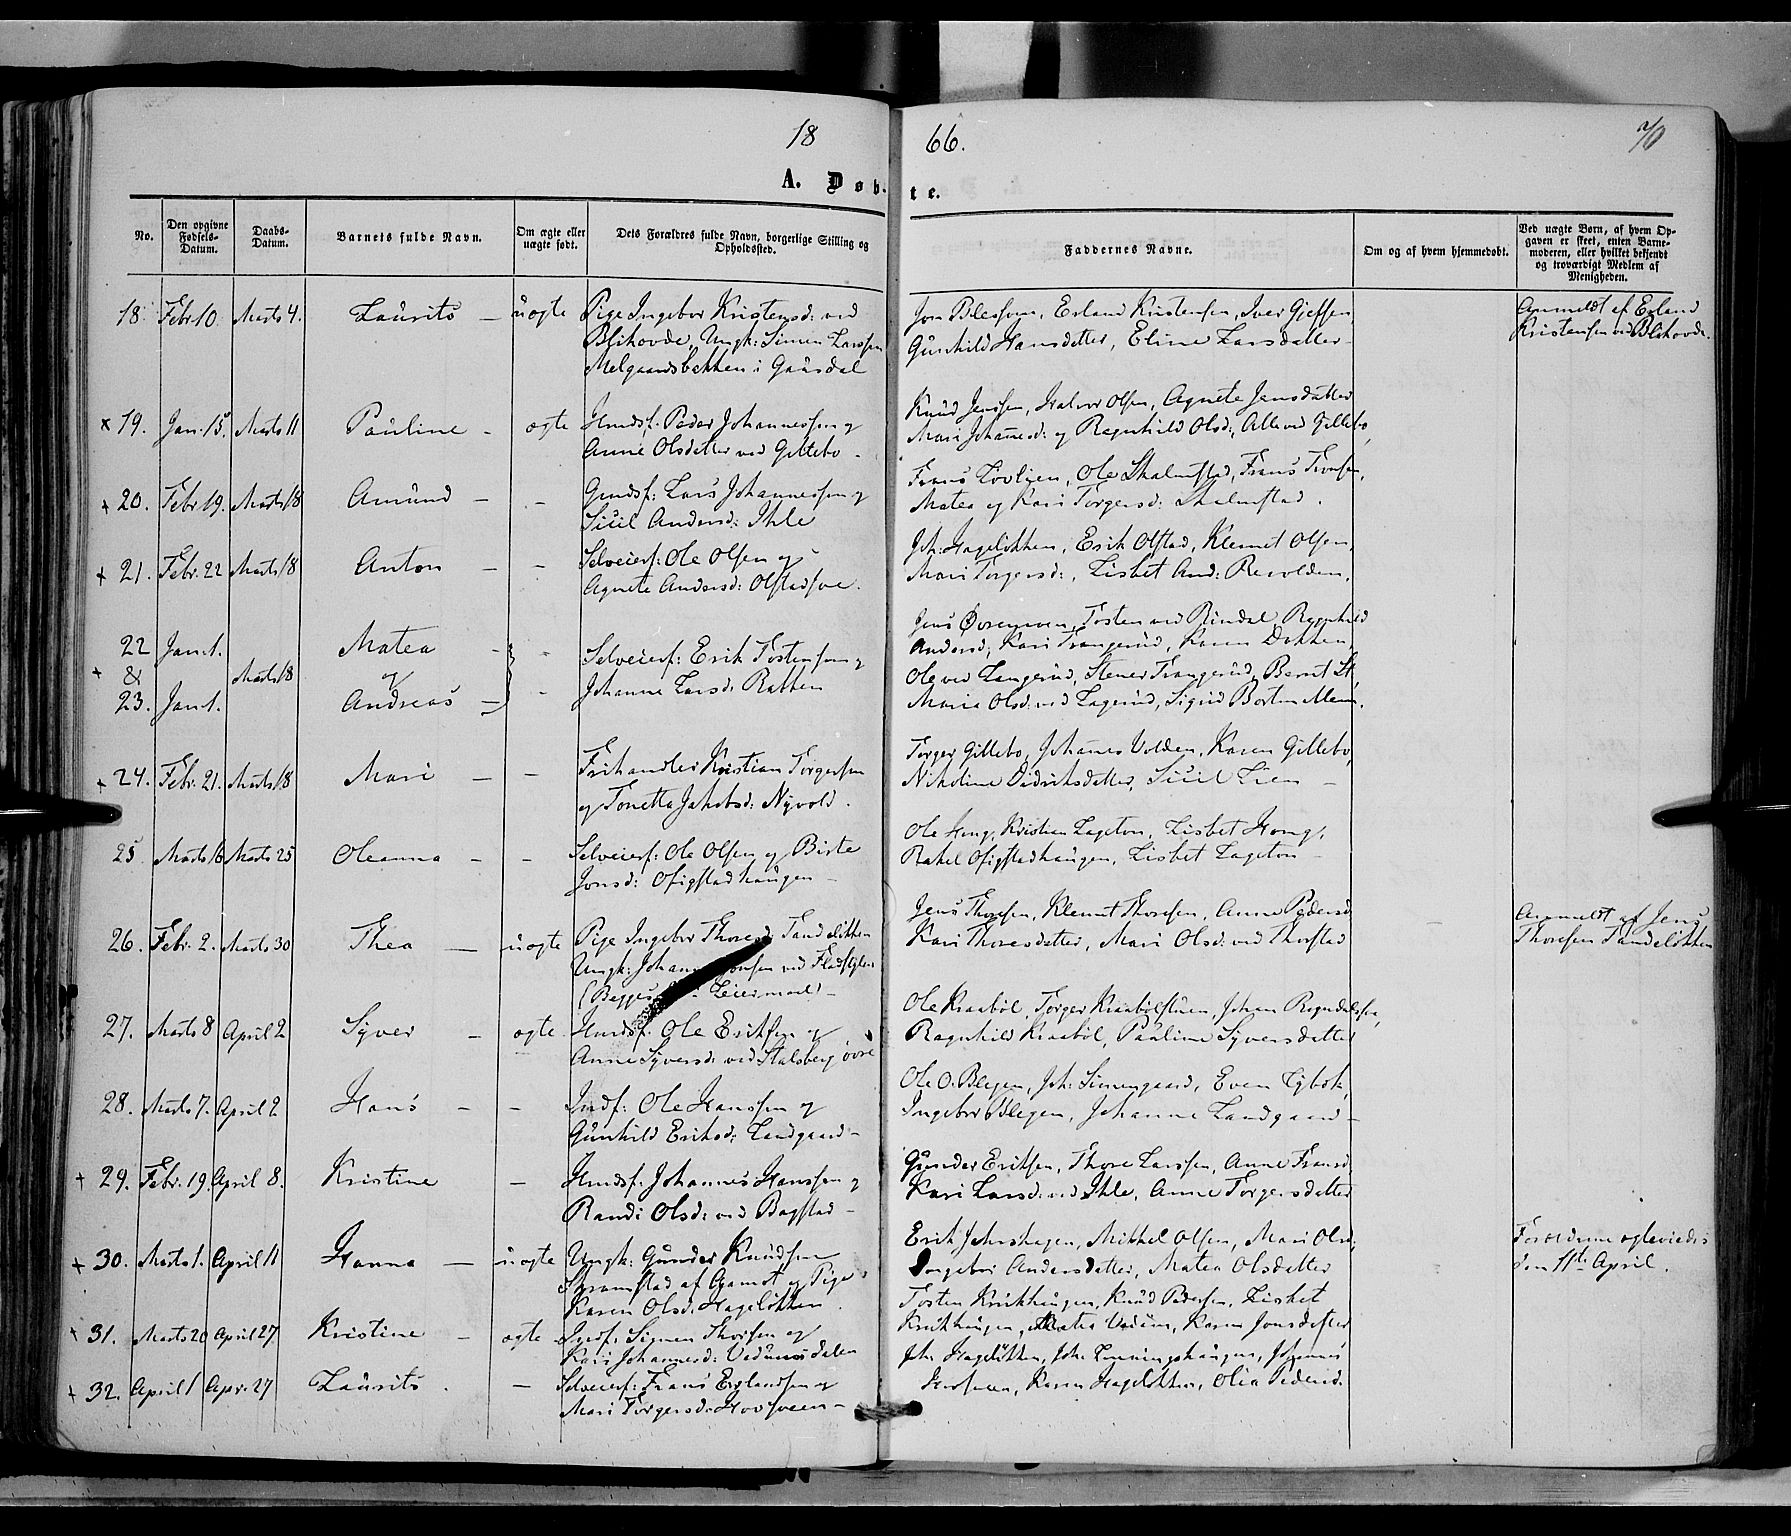 18 66. 70
A. Døbte.
No. Den opgivne Fødsels-Datum. Daabs-Datum. Barnets fulde Navn. Om ægte eller uægte født. Dets Forældres fulde Navn, borgerlige Stilling og Opholdssted. Faddernes Navne. Om og af hvem hjemmedøbt. Ved uægte Børn, af hvem Opgaven er skeet, enten Barnemoderen, eller hvilket bekjendt og troværdigt Medlem af Menigheden.
18. Febr. 10. Marts 4. Laurits — uægte Pige Ingebor Kristensd: ved
Blihovde, Ungk: Simen Larssen
Melgaardsbakken i Gausdal
Erland Kristensen, Iver
Gunhild Hansdatter, Eline Larsdatter
Anmeldt af Erland
Kristensen ved Blihovde.
x 19. Jan. 15. Marts 11 Pauline — ægte Huusf: Peder Johannessen og
Anne Olsdatter ved Gillebo.
Knud Jenssen, Halvor Olsen, Agnete Jensdatter
Mari Johannesd: og Ragnhild Olsd:, Alle ved Gillebo,
+ 20. Febr. 19. Marts 18 Amund — — Gaardsf: Lars Johannessen og
Sicil Andersd: Ihle
Frans Lovlien, Ole Skalmstad, Frans
Matea og Kari Torgersd: Skalmstad.
+ 21. Febr. 22 Marts 18 Anton — — Selveierf: Ole Olsen og
Agnete Andersd: Olstadsve.
Joh: Hageløkken, Erik Olstad, Klemet Olsen,
Mari Torgersd:, Lisbet And: Revolden.
22 Jan. 1. Matea — —
+ & Marts 18 og Selveierf: Erik Tostensen og
23. Jan. 1. Andreas — — Johanne Larsd: Bakken
Jens Tosten ved Rindal, Ragnhild
Andersd: Kari Trangerud, Karen Dokken,
Ole ved Langerud, Stener Trangerud, Bernt
Maria Olsd: ved Lagerud, Sigrid
+ 24. Febr. 21. Marts 18 Mari — — Frihandler Kristian Torgersen
og Tonetta Jakobsd: Nyvold.
Torger Gillebo, Johannes Volden, Karen Gillebo,
Nikoline Didriksdatter, Sicil Lien —
25 Marts 16 Marts 25 Oleanna — — Selveierf: Ole Olsen og Birte
Jonsd: Ofigstadhaugen —
Ole Hong, Kristian Lageton, Lisbet Hong,
Rakel Ofigstadhaugen, Lisbet Lageton —
26. Febr. 2. Marts 30 Thea — uægte Pige Ingebor Thoresd: Tandeløkken
Ungk: ved
Leiermaal) —
Jens Thoresen, Klemet Thoresen, Anne Pedersd
Kari Thoresdatter, Mari Olsd: ved Thorstad
Anmeldt af Jens
Thoresen Tandeløkken
27. Marts 8 April 2 Syver — ægte Huusf: Ole Eriksen og
Anne Syversd: ved Stalsberg øvre
Ole Kraabøl, Torger Kraabølstuen, Johan
Ragnhild Kraabøl, Pauline Syversdatter
28. Marts 7. April 2 Hans — — Indf: Ole Hanssen og
Gunhild Eriksd: Landgaard —
Ole O. Blegen, Joh: Simengaard, Even
Ingebor Blegen, Johanne Landgaard —
+ 29. Febr. 19. April 8. Kristine — Huusf: Johannes Hanssen og
Randi Olsd: ved Bagstad —
Gunder Eriksen, Thore Larssen, Anne Fransd
Kari Larsd: ved Ihle, Anne Torgersdatter
+ 30. Marts 1. April 11 Hanna — uægte Ungk: Gunder Knudsen
Stramstad af Gamet og Pige
Karen Olsd: Hageløkken.
Erik Mikkel Olsen, Mari Olsd,
Ingebor Andersdatter, Matea Olsdatter
Forældrene ægteviedes
den 11te April.
+ 31. Marts 20 April 27 Kristine — ægte Indf: Simen Thorsen og
Kari Johannesd:
Tosten Krikhaugen, Knud Pedersen, Lisbet
Krikhaugen, Karen Jonsdatter
+ 32. April 1 Apr. 27 Laurits. — Selveierf: Frans Erlandsen og
Mari Torgersd: Hovsveen —
Joh: Hageløkken, Joh: Johannes
Hovsveen, Karen Hageløkken, Olia Pedersd.